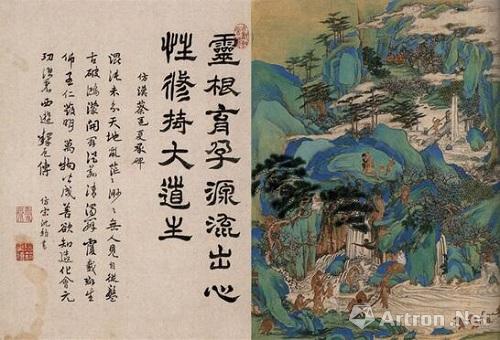 靈根育孕源流出心
性修持大道生
仿漢蔡邕夏承碑
混沌未分天地亂茫々渺々無人見自從盤
古破鴻濛開闢從茲清濁辨覆載群生
仰至仁發明萬物皆成善欲知造化會元
功須看西遊釋厄傳
仿宋沈書
Artron.Net